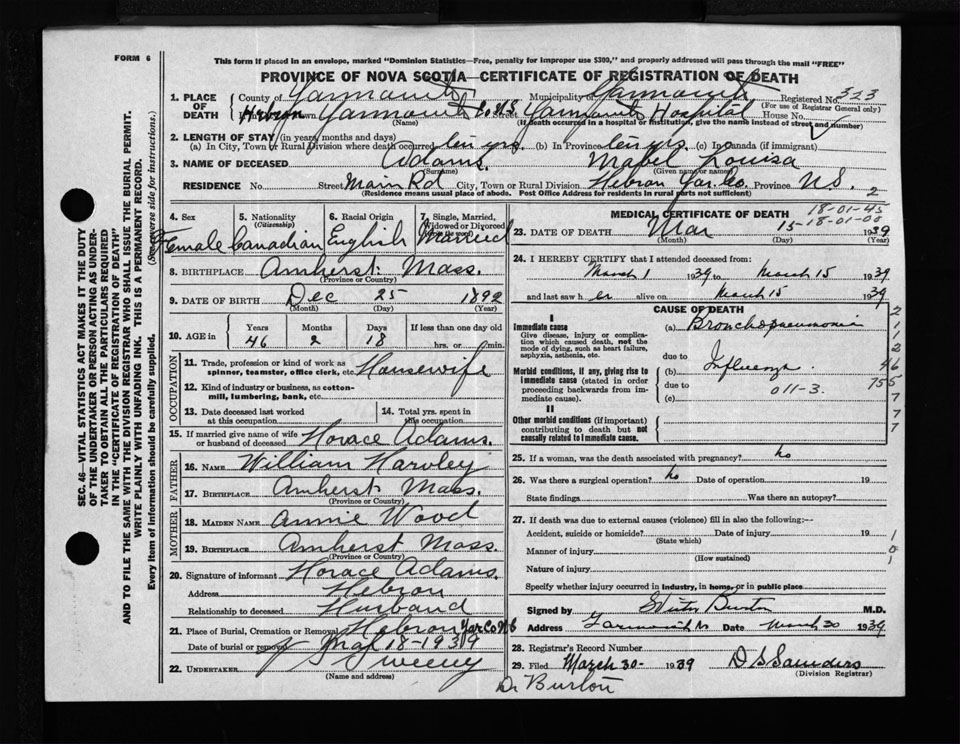 FORM 6
This form if placed in an envelope, marked "Dominion Statistics—Free, penalty for improper use $300," and properly addressed will pass through the mail "FREE"
PROVINCE OF NOVA SCOTIA—CERTIFICATE OF REGISTRATION OF DEATH
1. PLACE OF DEATH
County of Yarmouth Municipality Yarmouth Registered No. 323
(For use of Registrar General only)
Hebron Town Yarmouth Co NS Street Yarmouth Hospital House No.
(Name) (If death occurred in a hospital or institution, give the name instead of street and number)
2. LENGTH OF STAY (in years, months and days)
(a) In City, Town or Rural Division where death occurred ten yrs. (b) In Province ten yrs. (c) In Canada (if immigrant)
3. NAME OF DECEASED Adams. Mabel Louisa
(Surname) (Given name or name)
RESIDENCE No. Street Main Rd City, Town or Rural Division Hebron Yar. Co. Province N.S. 2
(Residence means usual place of abode. Post Office Address for residents in rural parts not sufficient)
4. Sex Female
5. Nationality (Citizenship) Canadian
6. Racial Origin English
7. Single, Married, Widowed or Divorced Married
8. BIRTHPLACE Amherst Mass.
(Province or Country)
9. DATE OF BIRTH Dec 25 1892
(Month) (Day) (Year)
10. AGE in Years 46 Months 2 Days 18 If less than one day old hrs. or min.
OCCUPATION
11. Trade, profession or kind of work as spinner, teamster, office clerk, etc. Housewife
12. Kind of industry or business, as cotton-mill, lumbering, bank, etc.
13. Date deceased last worked at this occupation
14. Total yrs. spent in this occupation
15. If married give name of wife or husband of deceased Horace Adams.
FATHER
16. NAME William Harvley
17. BIRTHPLACE Amherst Mass.
MOTHER
18. MAIDEN NAME Annie Wood
19. BIRTHPLACE Amherst Mass.
(Province or Country)
20. Signature of informant Horace Adams.
Address Hebron
Relationship to deceased Husband
21. Place of Burial, Cremation or Removal Hebron Yar Co NS
Date of burial or removal Mar 18-1939
22. UNDERTAKER Sweeny
(Name and address)
MEDICAL CERTIFICATE OF DEATH
18-01-45
18-01-08
23. DATE OF DEATH Mar 15 1939
(Month) (Day) (Year)
24. I HEREBY CERTIFY that I attended deceased from:
March 1 1939 to March 15 1939
and last saw h er alive on March 15 1939
CAUSE OF DEATH
I
Immediate cause
Give disease, injury or complication which caused death, not the mode of dying, such as heart failure, asphyxia, asthenia, etc.
(a) Bronchopneumonia
due to
Morbid conditions, if any, giving rise to immediate cause (stated in order proceeding backwards from immediate cause).
(b) Influenza.
due to 011-3.
(c)
II
Other morbid conditions (if important) contributing to death but not causally related to immediate cause.
25. If a woman, was the death associated with pregnancy? No
26. Was there a surgical operation? No Date of operation 19
State findings Was there an autopsy?
27. If death was due to external causes (violence) fill in also the following:—
Accident, suicide or homicide? Date of injury 19
(State which)
Manner of injury
(How sustained)
Nature of injury
Specify whether injury occurred in industry, in home, or in public place
Signed by Burton M.D.
Address Yarmouth Date March 30 1939
28. Registrar's Record Number
29. Filed March 30- 1939 D S Saunders
(Division Registrar)
Dr Burton
SEC. 46—VITAL STATISTICS ACT MAKES IT THE DUTY
OF THE UNDERTAKER OR PERSON ACTING AS UNDER-
TAKER TO OBTAIN ALL THE PARTICULARS REQUIRED
IN THE "CERTIFICATE OF REGISTRATION OF DEATH"
AND TO FILE THE SAME WITH THE DIVISION REGISTRAR WHO SHALL ISSUE THE BURIAL PERMIT.
WRITE PLAINLY WITH UNFADING INK. THIS IS A PERMANENT RECORD.
Every item of information should be carefully supplied. (See reverse side for instructions.)